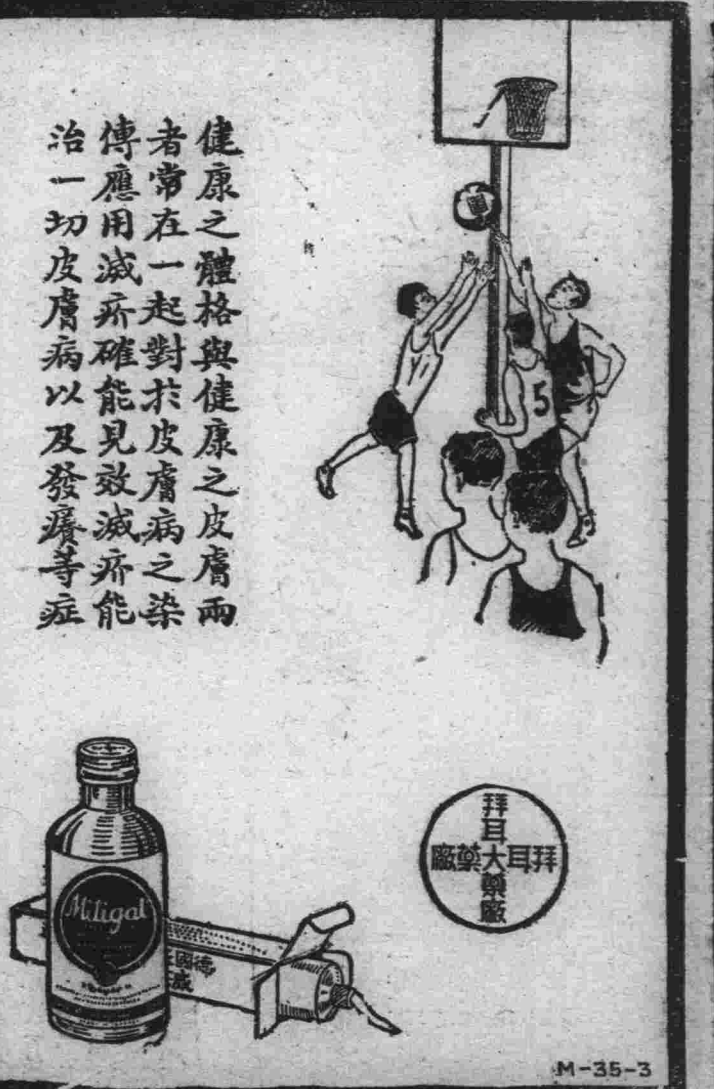 健康之體格與健康之皮膚兩
者常在一起對於皮膚病之染
傳應用滅疥確能見效滅疥能
治一切皮膚病以及發癢等症
5
拜耳大藥廠
拜耳大藥廠
Mitigal
德國
M-35-3